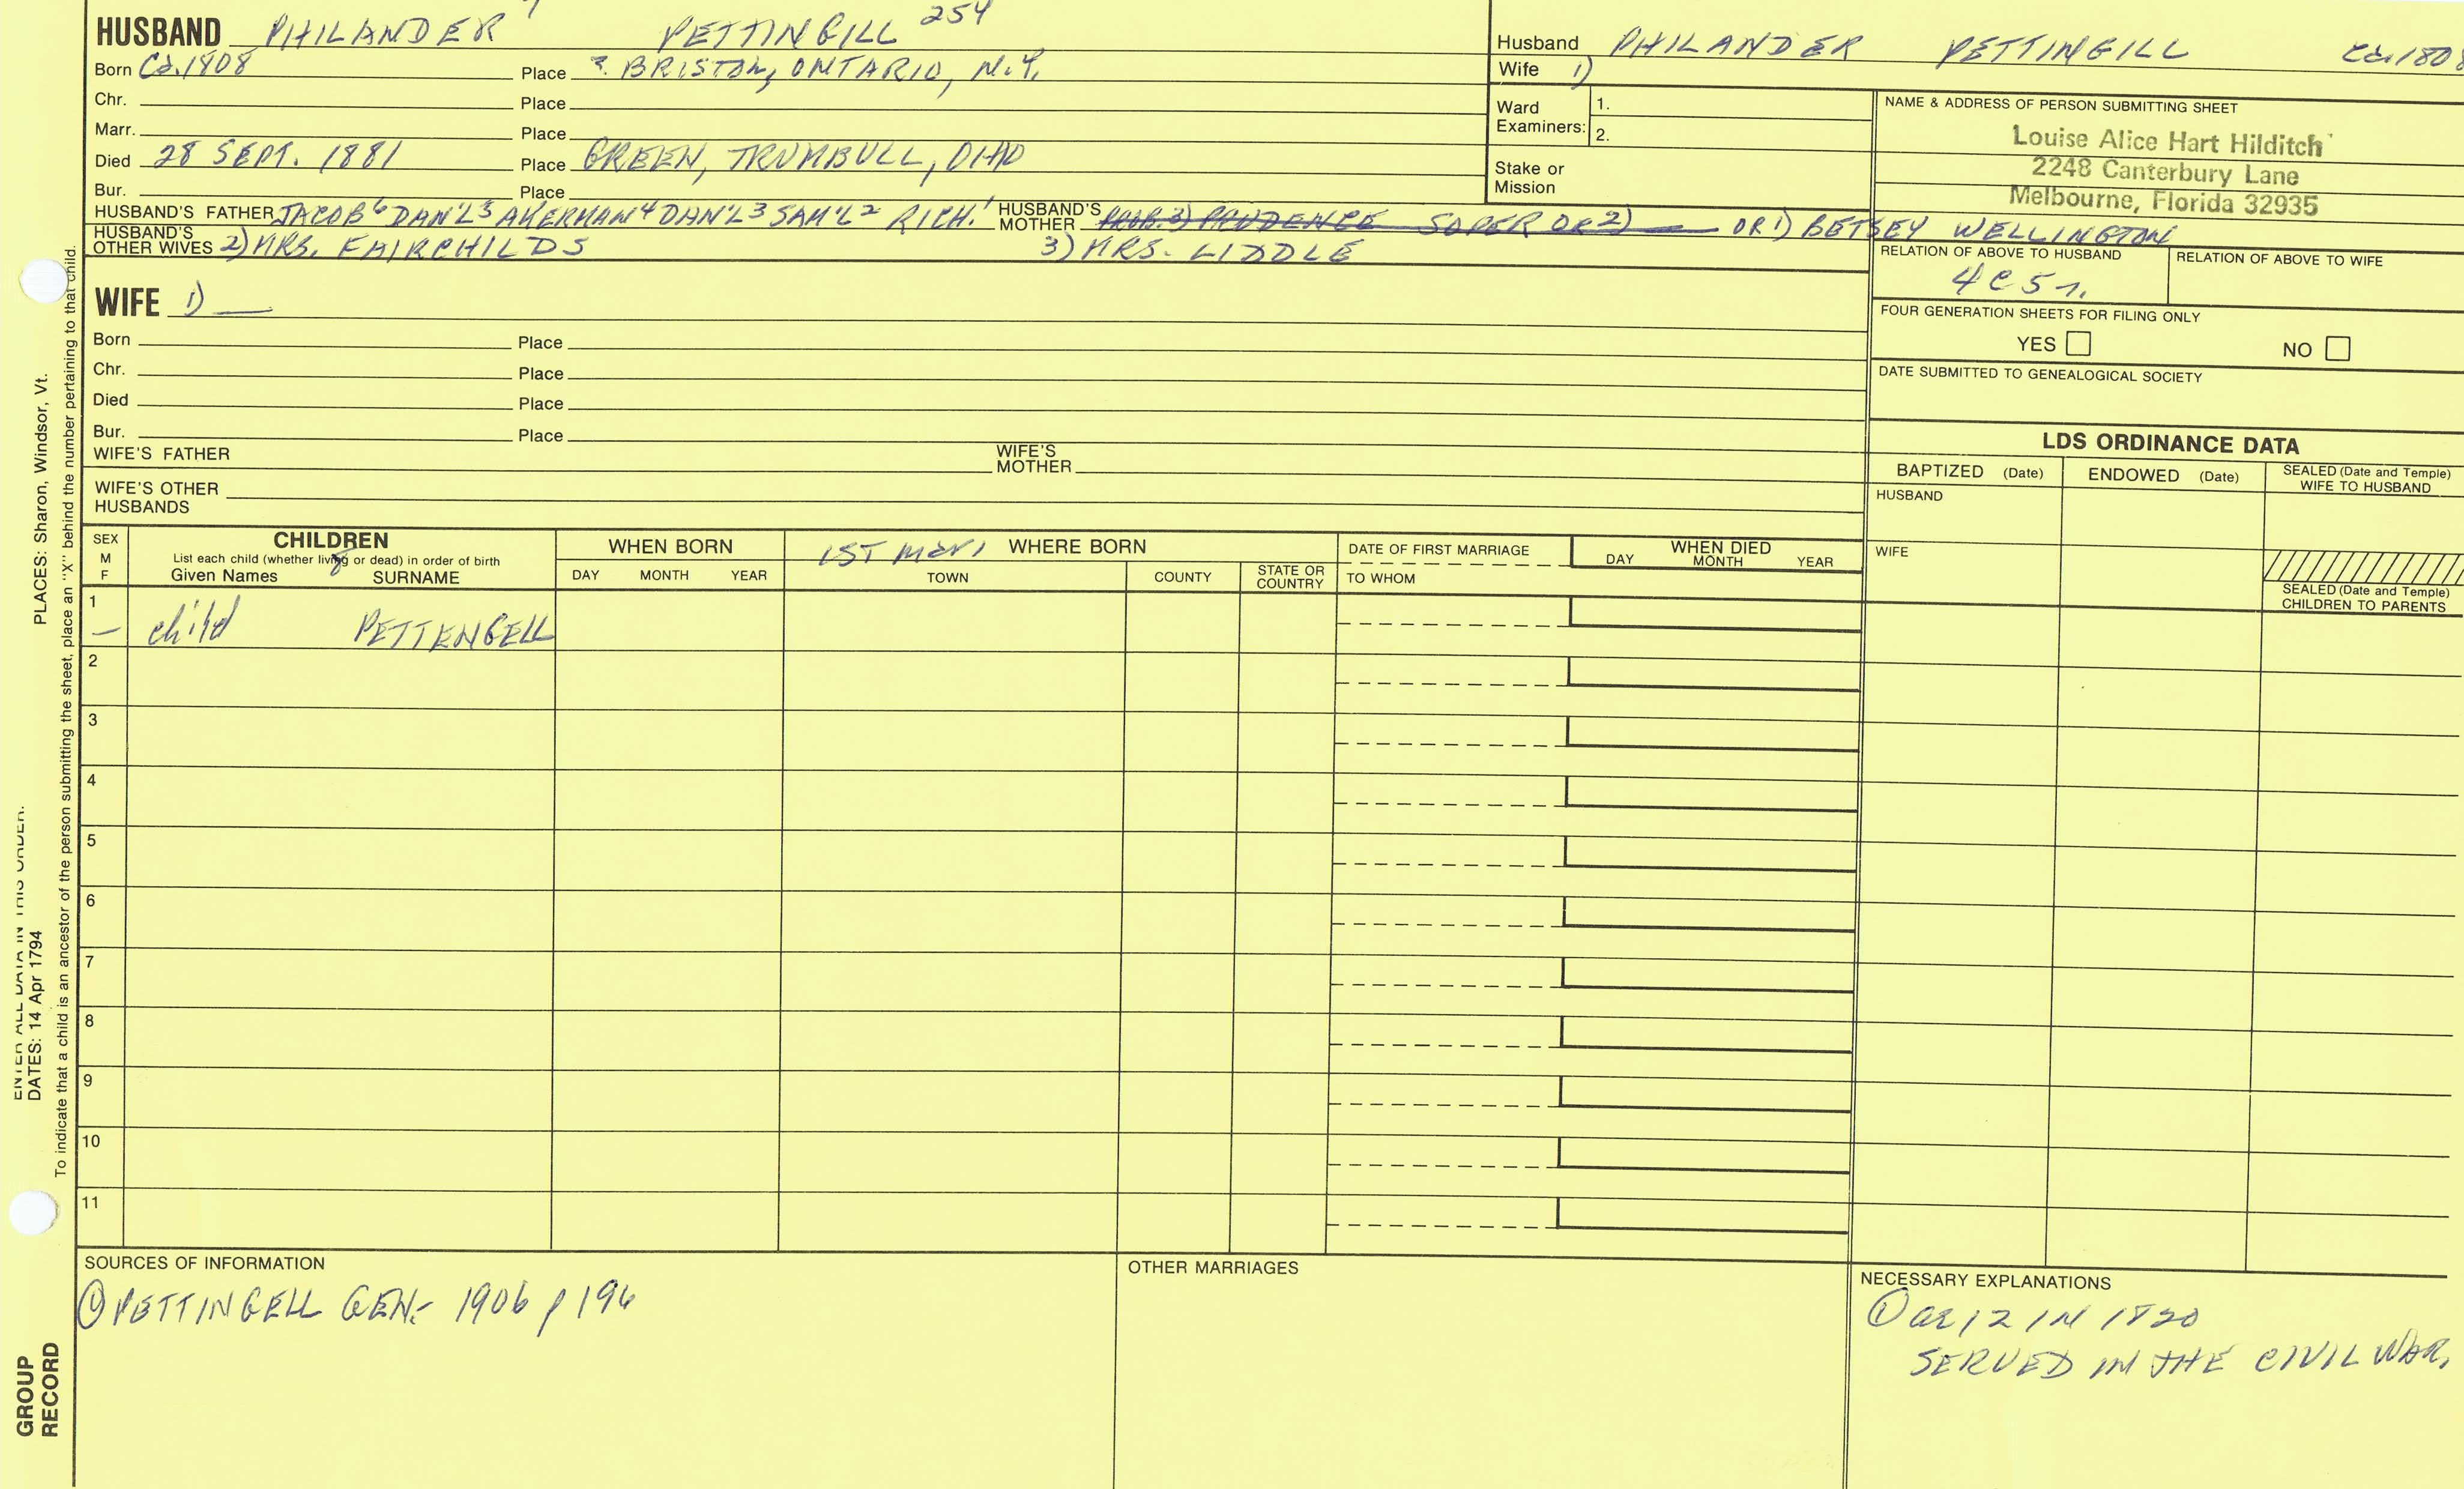 HUSBAND PHILANDER 7 PETTINGILL 254
Born Ca.1808 Place ?. BRISTOL, ONTARIO, N.Y.
Chr. Place
Marr. Place
Died 28 SEPT. 1881 Place GREEN, TRUMBULL, OHIO
Bur. Place
HUSBAND'S FATHER JACOB6 DAN'L5 AKERMAN4 DAN'L3 SAM'L2 RICH.1 HUSBAND'S MOTHER PROB. 3) PRUDENCE SOPER OR 2) OR 1) BETSEY WELLINGTON
HUSBAND'S OTHER WIVES 2) MRS. FAIRCHILDS 3) MRS. LIDDLE
WIFE 1) —
Born Place
Chr. Place
Died Place
Bur. Place
WIFE'S FATHER WIFE'S MOTHER
WIFE'S OTHER HUSBANDS
Husband PHILANDER PETTINGILL Ca.1808
Wife 1)
Ward Examiners: 1.
2.
Stake or Mission
NAME & ADDRESS OF PERSON SUBMITTING SHEET
Louise Alice Hart Hilditch
2248 Canterbury Lane
Melbourne, Florida 32935
RELATION OF ABOVE TO HUSBAND RELATION OF ABOVE TO WIFE
4C5r.
FOUR GENERATION SHEETS FOR FILING ONLY
YES NO
DATE SUBMITTED TO GENEALOGICAL SOCIETY
LDS ORDINANCE DATA
BAPTIZED (Date) ENDOWED (Date) SEALED (Date and Temple) WIFE TO HUSBAND
HUSBAND
WIFE
SEALED (Date and Temple) CHILDREN TO PARENTS
SEX M F
CHILDREN
List each child (whether living or dead) in order of birth
Given Names 8 SURNAME
WHEN BORN
DAY MONTH YEAR
1ST MARI WHERE BORN
TOWN COUNTY STATE OR COUNTRY
DATE OF FIRST MARRIAGE
TO WHOM
WHEN DIED
DAY MONTH YEAR
1
— child PETTENGELL
2
3
4
5
6
7
8
9
10
11
SOURCES OF INFORMATION
① PETTINGELL GEN.- 1906 p 196
OTHER MARRIAGES
NECESSARY EXPLANATIONS
① ae 12 IN 1820
SERVED IN THE CIVIL WAR.
ENTER ALL DATA IN THIS ORDER:
DATES: 14 Apr 1794
PLACES: Sharon, Windsor, Vt.
To indicate that a child is an ancestor of the person submitting the sheet, place an "X" behind the number pertaining to that child.
GROUP
RECORD